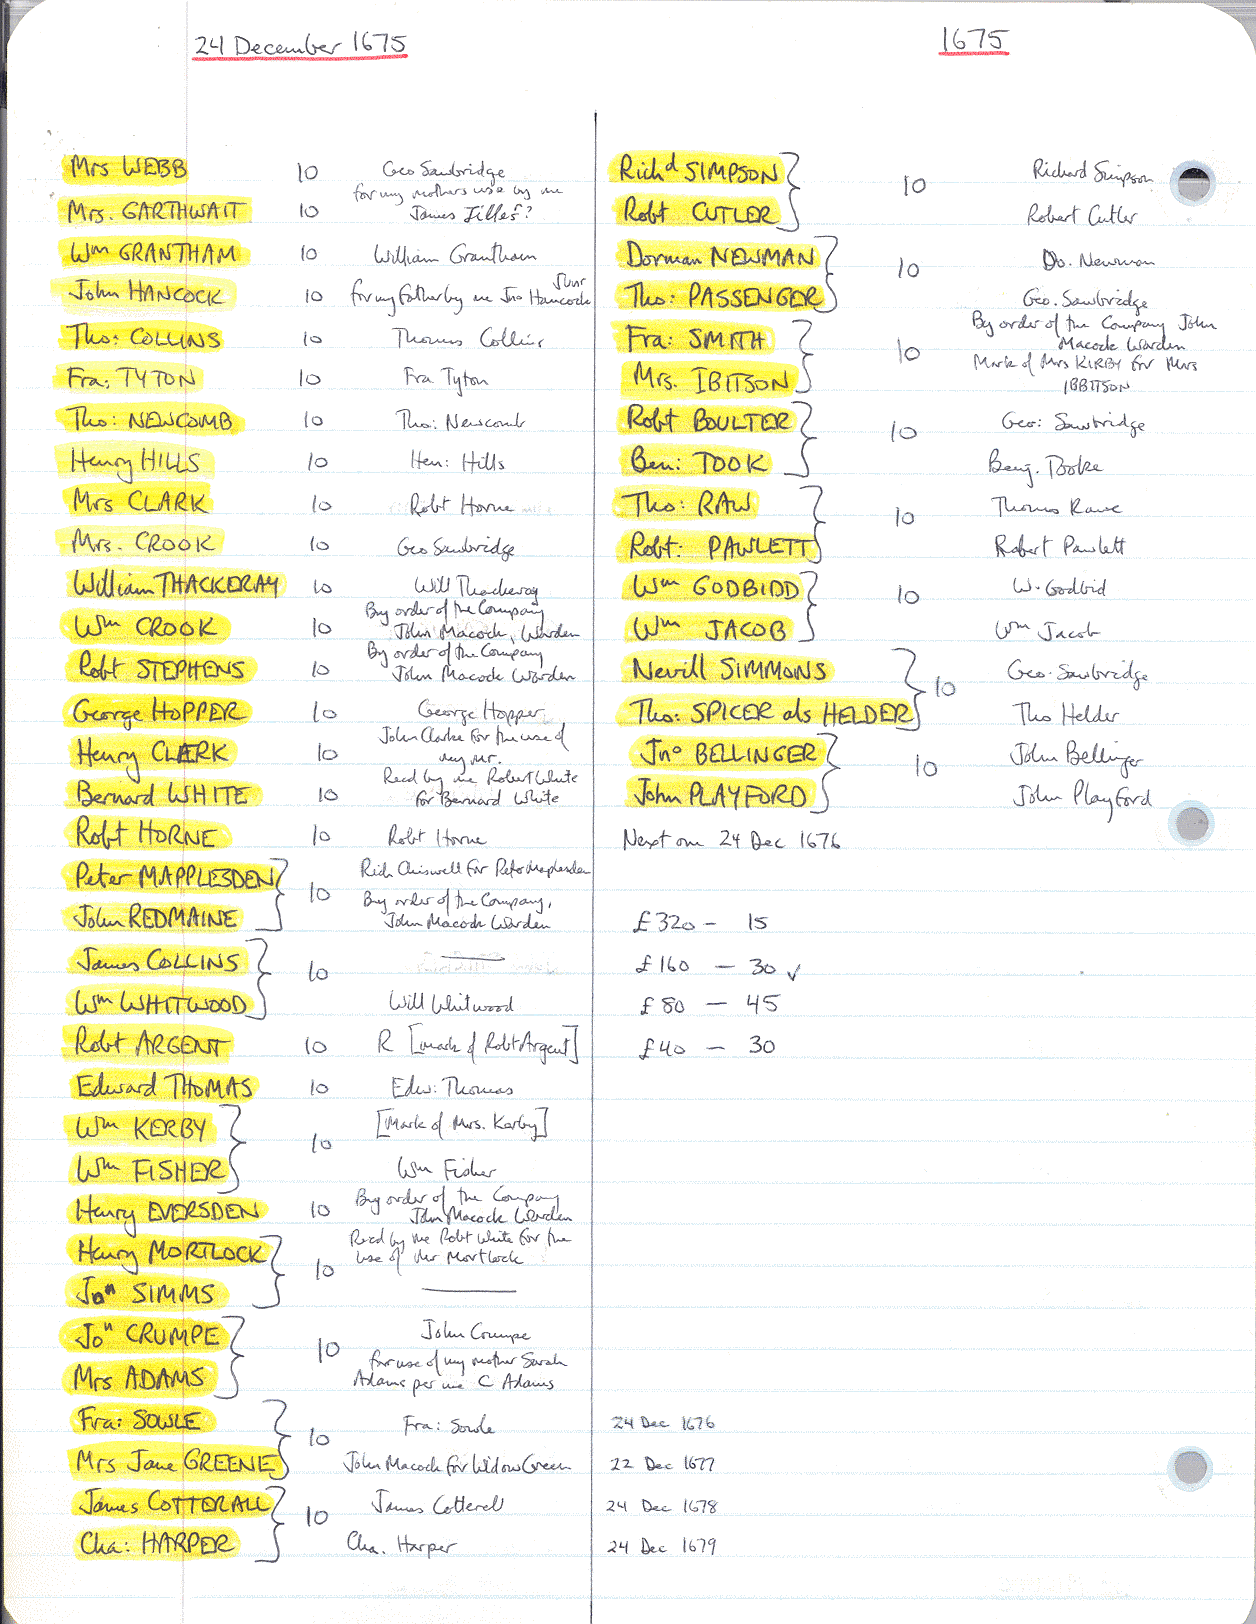 24 December 1675
1675
Mrs WEBB 10 Geo Sawbridge
Mrs. GARTHWAIT 10 for my mothers use by me
James Jilles?
Wm GRANTHAM 10 William Grantham
John HANCOCK 10 for my father by me Jno Hancock Junr
Tho: COLLINS 10 Thomas Collins
Fra: TYTON 10 Fra Tyton
Tho: NEWCOMB 10 Tho: Newcomb
Henry HILLS 10 Hen: Hills
Mrs CLARK 10 Robt Horne
Mrs. CROOK 10 Geo Sawbridge
William THACKERAY 10 Will Thackeray
Wm CROOK 10 By order of the Company
John Macock, Warden
Robt STEPHENS 10 By order of the Company
John Macock Warden
George HOPPER 10 George Hopper
Henry CLARK 10 John Clarke for the use of
my mr.
Bernard WHITE 10 Recd by me Robert White
for Bernard White
Robt HORNE 10 Robt Horne
Peter MAPPLESDEN } 10 Rich Chiswell for Peter Maplesden
John REDMAINE By order of the Company,
John Macock Warden
James COLLINS } 10 ——
Wm WHITWOOD Will Whitwood
Robt ARGENT 10 R [mark of Robt Argent]
Edward THOMAS 10 Edw: Thomas
Wm KERBY } 10 [Mark of Mrs. Kerby]
Wm FISHER Wm Fisher
Henry EVERSDEN 10 By order of the Company
John Macock Warden
Henry MORTLOCK } 10 Recd by me Robt White for the
use of Mr Mortlock
Jon SIMMS ——
Jon CRUMPE } 10 John Crumpe
Mrs ADAMS for use of my mother Sarah
Adams per me C Adams
Fra: SOWLE } 10 Fra: Sowle
Mrs Jane GREENE John Macock for Widow Green
James COTTERALL } 10 James Cotterell
Cha: HARPER Cha. Harper
Richd SIMPSON } 10 Richard Simpson
Robt CUTLER Robert Cutler
Dorman NEWMAN } 10 Do. Newman
Tho: PASSENGER Geo. Sawbridge
Fra: SMITH } 10 By order of the Company John
Macock Warden
Mrs. IBITSON Mark of Mrs KIRBY for Mrs
IBBITSON
Robt BOULTER } 10 Geo: Sawbridge
Ben: TOOK Benj. Tooke
Tho: RAW } 10 Thomas Rawe
Robt: PAWLETT Robert Pawlett
Wm GODBIDD } 10 W. Godbid
Wm JACOB Wm Jacob
Nevill SIMMONS } 10 Geo. Sawbridge
Tho: SPICER als HELDER Tho Helder
Jno BELLINGER } 10 John Bellinger
John PLAYFORD John Playford
Next on 24 Dec 1676
£320 – 15
£160 – 30 ✓
£80 – 45
£40 – 30
24 Dec 1676
22 Dec 1677
24 Dec 1678
24 Dec 1679